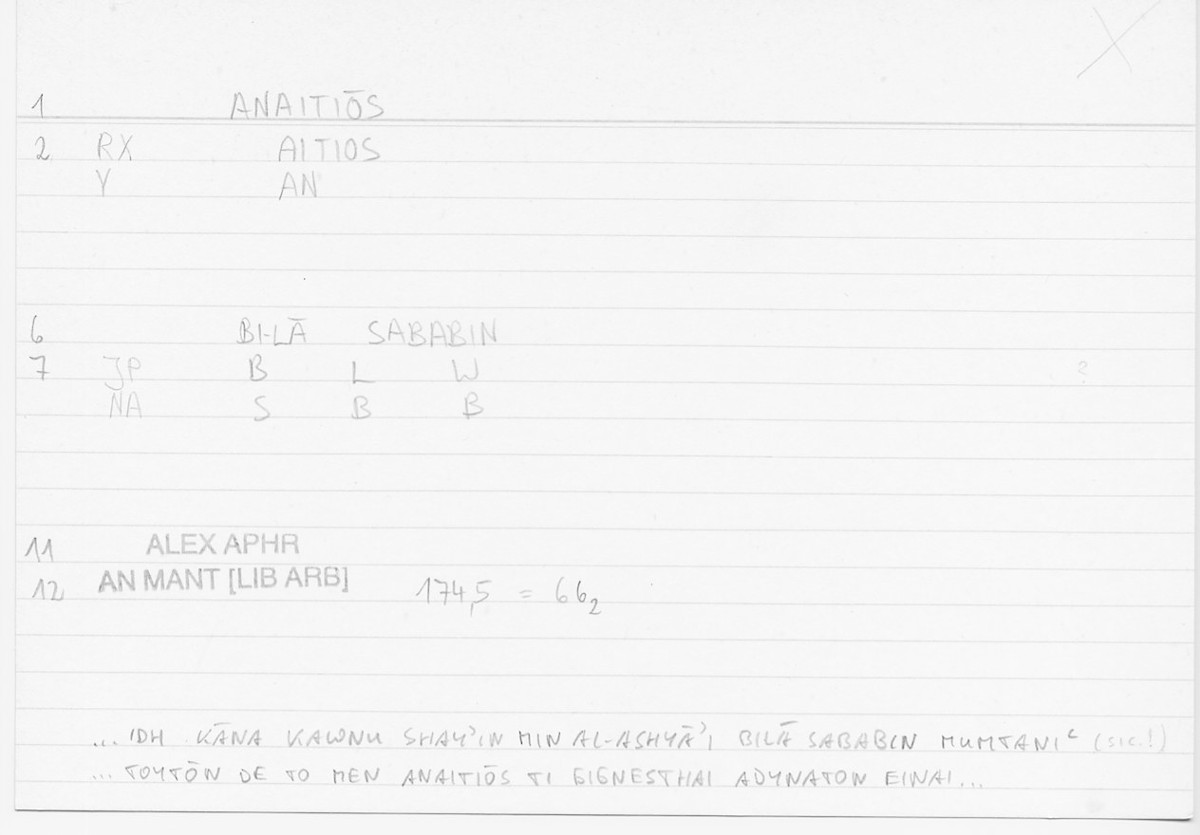 X
1 ANAITIŌS
2 RX AITIOS
Y AN
6 BI-LĀ SABABIN
7 JP B L W ?
NA S B B
11 ALEX APHR
12 AN MANT [LIB ARB] 174,5 = 66₂
... IDH KĀNA KAWNU SHAY'IN MIN AL-ASHYĀ'I BILĀ SABABIN MUMTANIᶜ (sic!)
... TOYTŌN DE TO MEN ANAITIŌS TI GIGNESTHAI ADYNATON EINAI...